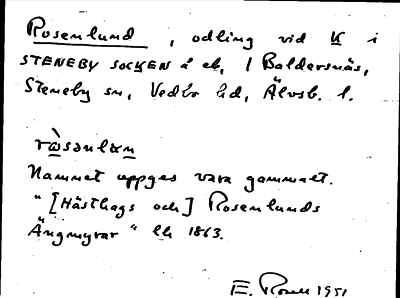 Rosenlund, odling vid K i
STENEBY SOCKEN å ek, / Baldersnäs,
Steneby sn, Vedbo hd, Älvsb. l.
Namnet uppges vara gammalt.
" [Hästhags och] Rosenlunds
Ängmyrar " lh 1863.
E. 1951